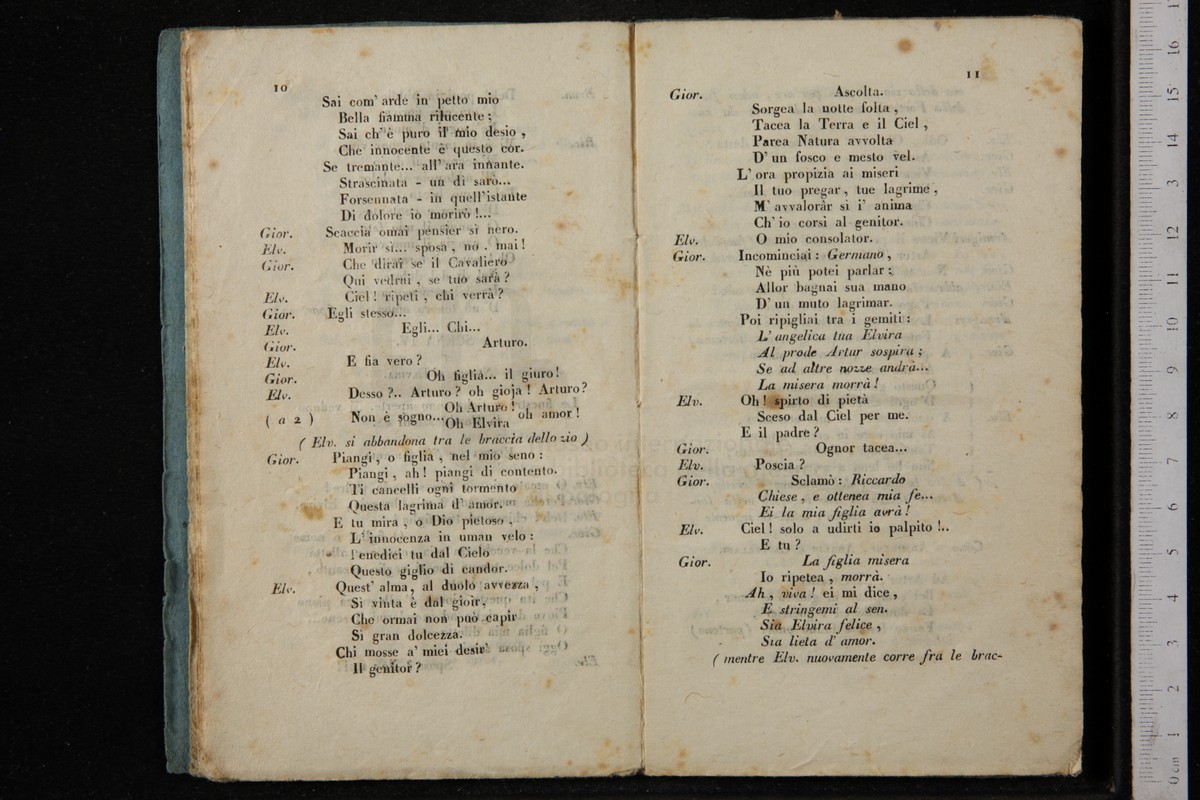 10
Sai com' arde in petto mio
Bella fiamma rilucente;
Sai ch' è puro il mio desio ,
Che innocente è questo cor.
Se tremante... all' ara innante.
Strascinata - un dì sarò...
Forsennata - in quell'istante
Di dolore io morirò !...
Gior. Scaccia omai pensier sì nero.
Elv. Morir sì... sposa , no . mai !
Gior. Che dirai se il Cavaliero
Qui vedrai , se tuo sarà ?
Elv. Ciel ! ripeti , chi verrà ?
Gior. Egli stesso...
Elv. Egli... Chi...
Gior. Arturo.
Elv. E fia vero ?
Gior. Oh figlia... il giuro !
Elv. Desso ?.. Arturo ? oh gioja ! Arturo?
( a 2 ) Non è sogno... Oh Arturo ! oh amor !
Oh Elvira
( Elv. si abbandona tra le braccia dello zio )
Gior. Piangi , o figlia , nel mio seno :
Piangi , ah ! piangi di contento.
Ti cancelli ogni tormento
Questa lagrima d' amor.
E tu mira , o Dio pietoso ,
L' innocenza in uman velo :
Benedici tu dal Cielo
Questo giglio di candor.
Elv. Quest' alma, al duolo avvezza ,
Sì vinta è dal gioir,
Che ormai non può capir
Sì gran dolcezza.
Chi mosse a' miei desir
Il genitor ?
11
Gior. Ascolta.
Sorgea la notte folta ,
Tacea la Terra e il Ciel ,
Parea Natura avvolta
D' un fosco e mesto vel.
L' ora propizia ai miseri
Il tuo pregar , tue lagrime ,
M' avvalorâr sì i' anima
Ch' io corsi al genitor.
Elv. O mio consolator.
Gior. Incominciai : Germano ,
Nè più potei parlar ;
Allor bagnai sua mano
D' un muto lagrimar.
Poi ripigliai tra i gemiti :
L' angelica tua Elvira
Al prode Artur sospira ;
Se ad altre nozze andrà...
La misera morrà !
Elv. Oh ! spirto di pietà
Sceso dal Ciel per me.
E il padre ?
Gior. Ognor tacea...
Elv. Poscia ?
Gior. Sclamò : Riccardo
Chiese , e ottenea mia fè...
Ei la mia figlia avrà !
Elv. Ciel ! solo a udirti io palpito !..
E tu ?
Gior. La figlia misera
Io ripetea , morrà.
Ah , viva ! ei mi dice ,
E stringemi al sen.
Sia Elvira felice ,
Sia lieta d' amor.
( mentre Elv. nuovamente corre fra le brac-